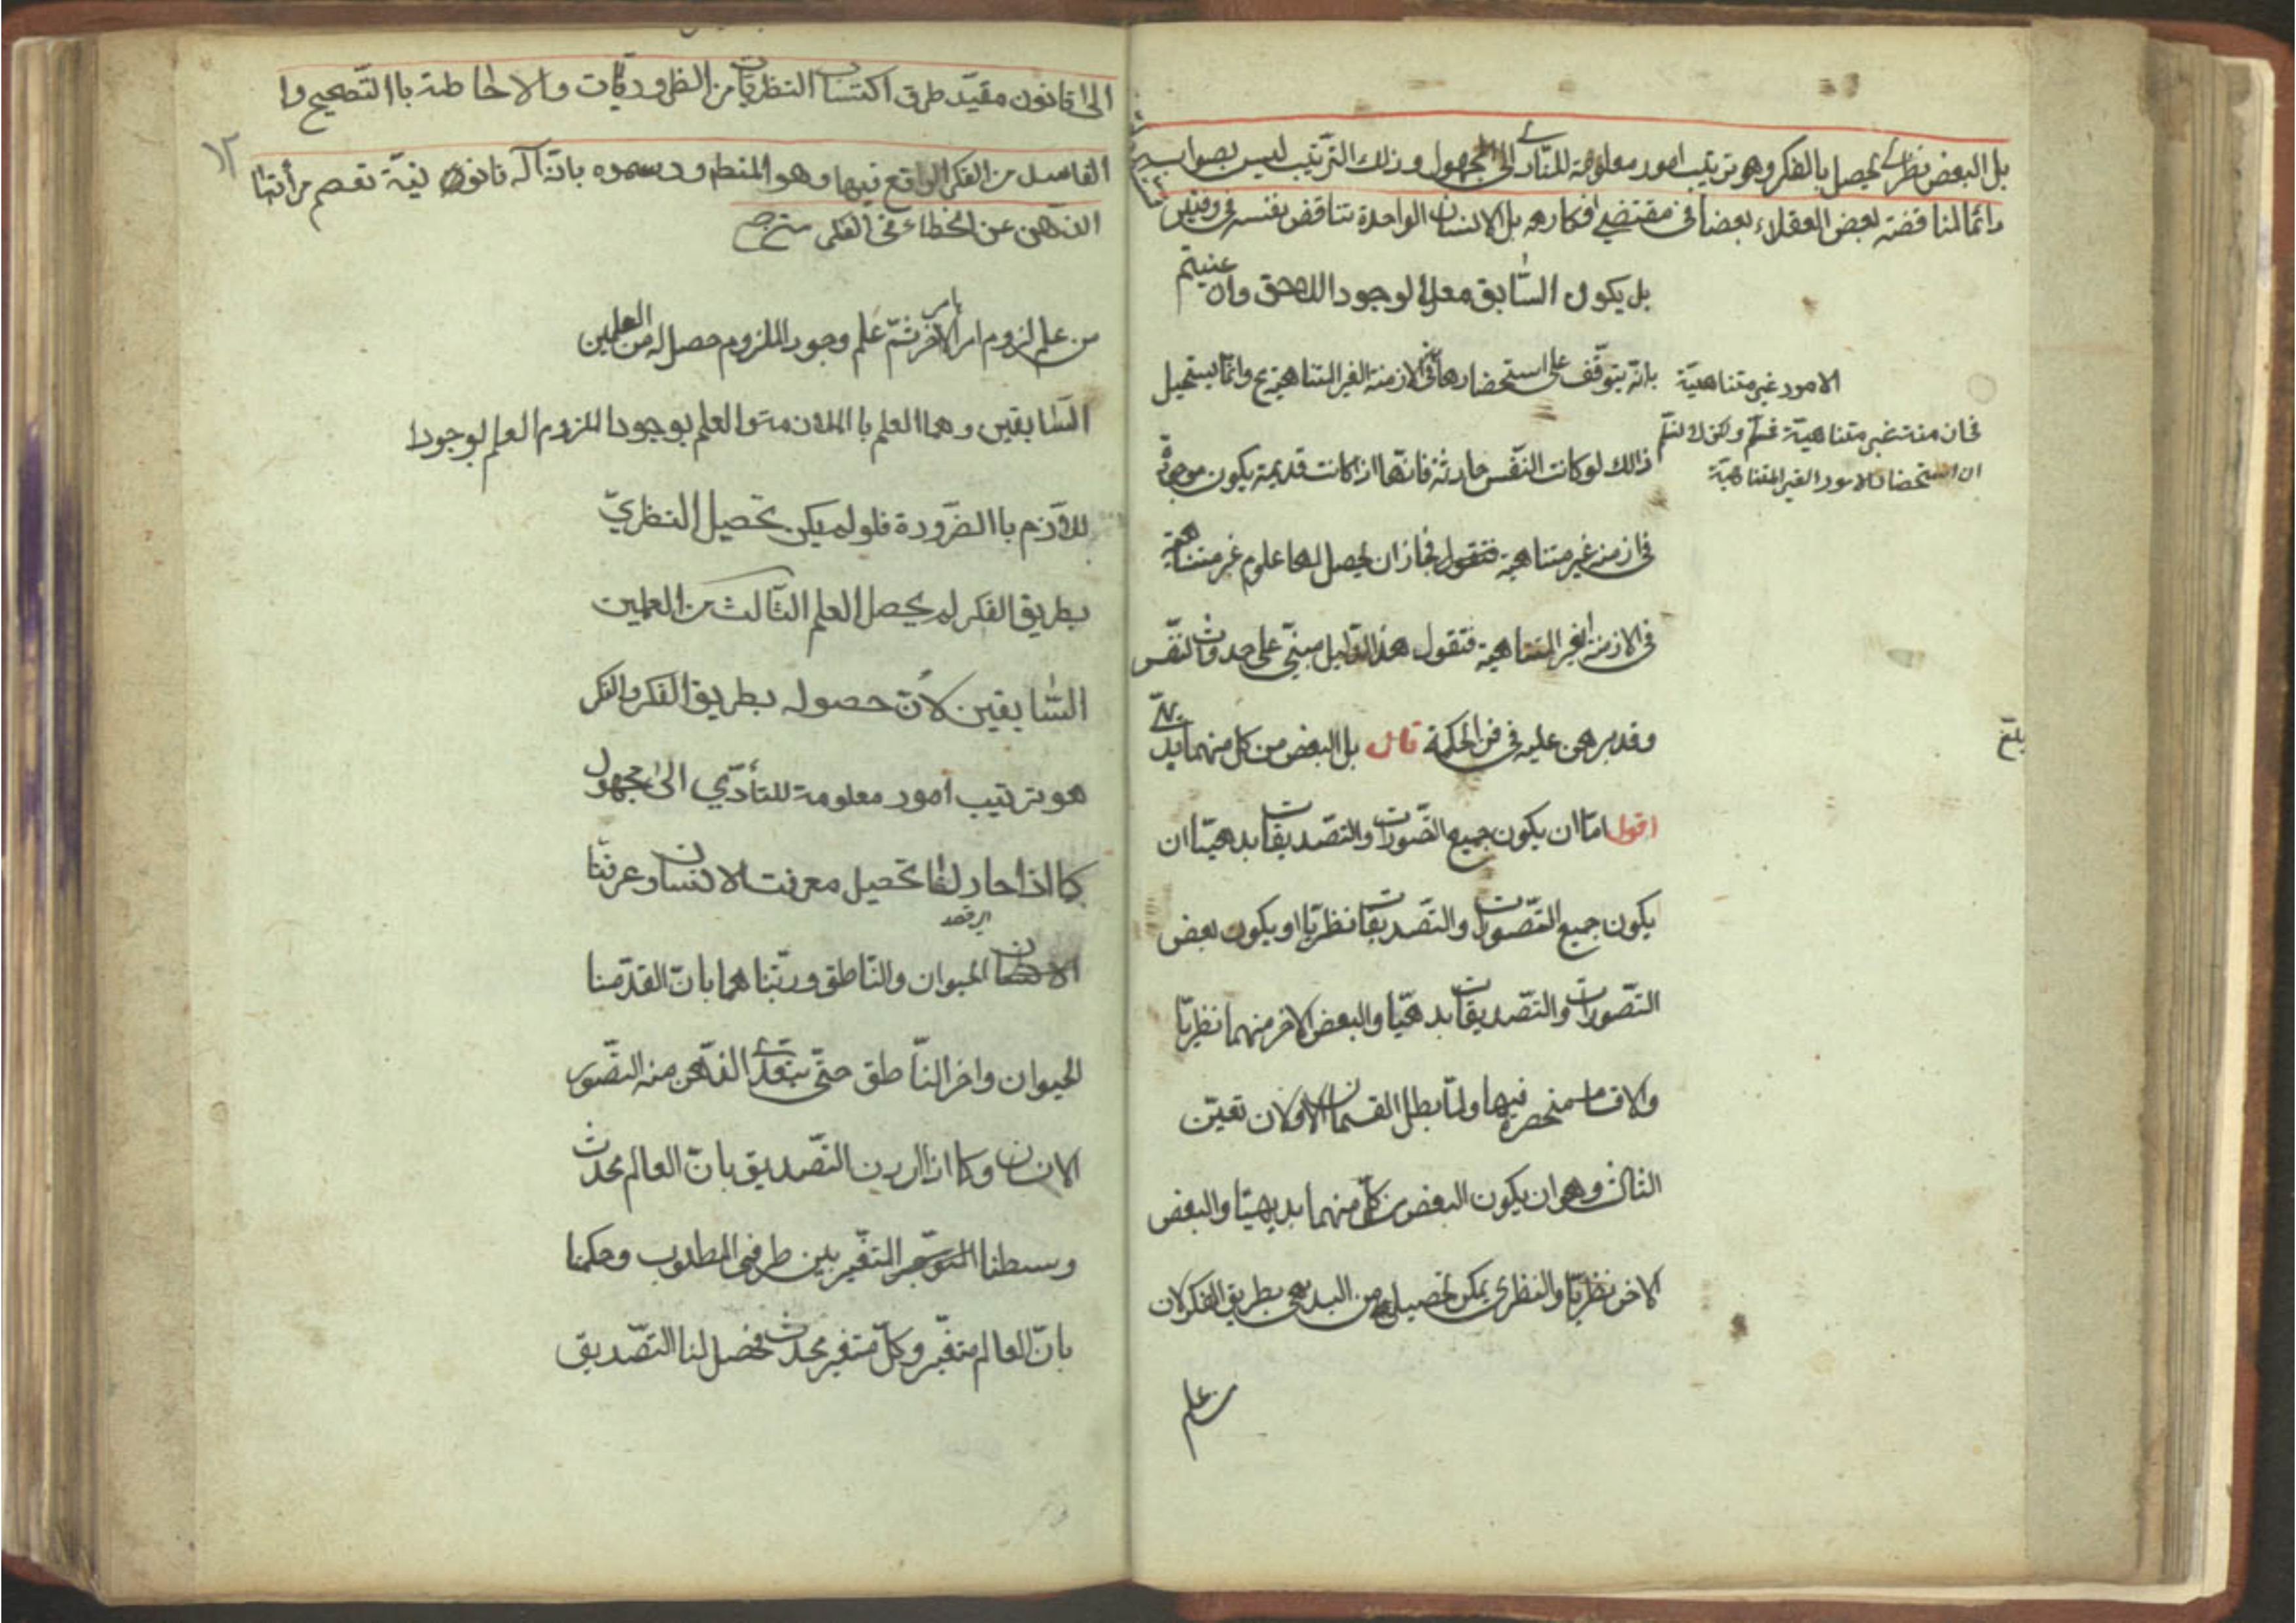 بل البعض نظرى يحصل بالفكر وهو ترتيب امور معلومة للتأدى الى المجهول وذلك الترتيب ليس بصواب
دائما لمناقضة بعض العقلاء بعضا فى مقتضى افكارهم بل الانسان الواحدة تناقض نفسه فى وقتين
بل يكون السّابق معدا لوجود اللاحق وان عنيتم
بانّه يتوقّف على استحضارها فى الازمنة الغير المتناهية وانّما يستحيل
الامور غير متناهيّة
فى ازمنة غير متناهيّة فمسلّم ولكن لا نسلّم
ان استحضار الامور الغير المتناهيّة
ذالك لو كانت النّفس حادثة فانّها اذا كانت قديمة يكون موجودة
فى ازمنة غير متناهية فنقول فجاز ان يحصل لها علوم غير متناهية
فى الازمنة الغير المتناهية فنقول هذا الدّليل مبنىّ على حدوث النّفس
وقد برهن عليه فى فن الحكمة قال بل البعض من كل منهما بديهىّ
اقول امّا ان يكون جميع التّصوّرات والتّصديقات بدهيّا ان
يكون جميع التّصورات والتّصديقات نظريّا او يكون بعض
التّصورات والتّصديقات بدهيّا والبعض الاخر منهما نظريّا
والاقسام منحصرة فيها ولمّا بطل القسمان الاولان تعيّن
الثالث وهو ان يكون البعض من كلّ منهما بديهيّا والبعض
الاخر نظريّا والنظرى يمكن تحصيله من البديهى بطريق الفكر لان
من علم
بلغ
الى قانون مفيد طرق اكتساب النظريّات من الضروريّات والاحاطة باالتّصحيح وا
١٢
الفاسد من الفكر الواقع فيها وهو المنطق ورسموه بانّه آلة قانونيّة تعصم مرأتها
الذّهن عن الخطاء فى الفكر
من علم لزوم امر لاخر ثمّ علم وجود الملزوم حصل له من العلمين
السّابقين وهما العلم باالملازمة والعلم بوجود الملزوم العلم بوجودا
للاّزم باالضّرورة فلو لم يكن تحصيل النظريّ
بطريق الفكر لم يحصل العلم الثّالث من العلمين
السّابقين لأنّ حصوله بطريق الفكر والفكر
هو ترتيب أمور معلومة للتأدّي الى مجهول
كما اذا حاولنا تحصيل معرفت الانسان وعرفنا
الحيوان والنّاطق ورتّبناهما بانّ القدّمنا
الحيوان واخر النّاطق حتّى يتعدّى الذّهن منه التصّور
الانسان وكما اذا اردن التّصديق بانّ العالم محدث
وسطنا المتغيّر بين طرفى المطلوب وحكمنا
بانّ العالم متغيّر وكلّ متغير محدث فحصل لنا التّصديق